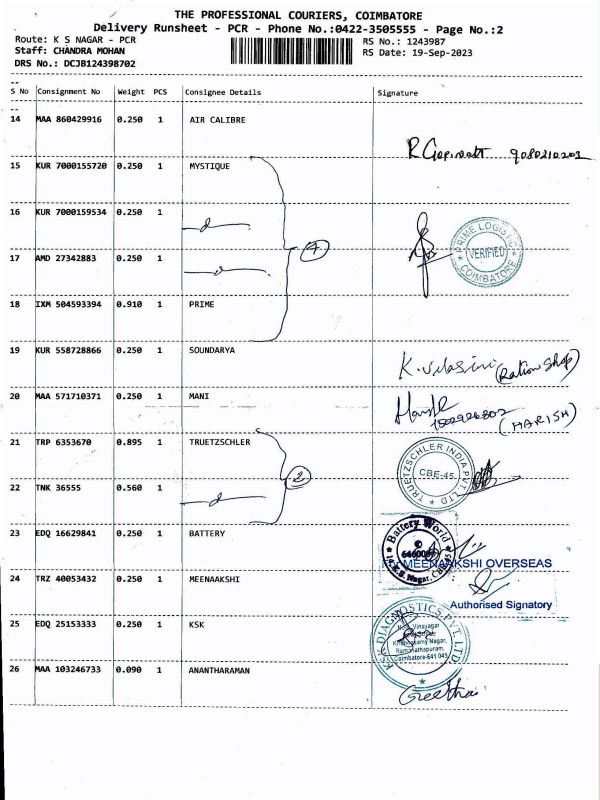 THE PROFESSIONAL COURIERS, COIMBATORE
Delivery Runsheet - PCR - Phone No.:0422-3505555 - Page No.:2
Route: K S NAGAR - PCR
RS No.: 1243987
Staff: CHANDRA MOHAN
RS Date: 19-Sep-2023
DRS No.: DCJB124398702
S No Consignment No Weight PCS Consignee Details Signature
14 MAA 860429916 0.250 1 AIR CALIBRE
R Gopinatt 9080210203
15 KUR 7000155720 0.250 1 MYSTIQUE
16 KUR 7000159534 0.250 1
PRIME LOGISTIC
VERIFIED
COIMBATORE
17 AMD 27342883 0.250 1
18 IXM 504593394 0.910 1 PRIME
19 KUR 558728866 0.250 1 SOUNDARYA
K. Vilasini (Ration Shop)
20 MAA 571710371 0.250 1 MANI
(HARISH)
21 TRP 6353670 0.895 1 TRUETZSCHLER
TRUETZSCHLER INDIA PVT. LTD
CBE-45
22 TNK 36555 0.560 1
2
23 EDQ 16629841 0.250 1 BATTERY
Battery World
K.S. Nagar, CBE-45
MEENAAKSHI OVERSEAS
24 TRZ 40053432 0.250 1 MEENAAKSHI
Authorised Signatory
25 EDQ 25153333 0.250 1 KSK
DIAGNOSTICS PVT. LTD
Vinayagar
Krishnasamy Nagar,
Ramanathapuram,
Coimbatore-641 045
26 MAA 103246733 0.090 1 ANANTHARAMAN
Geetha